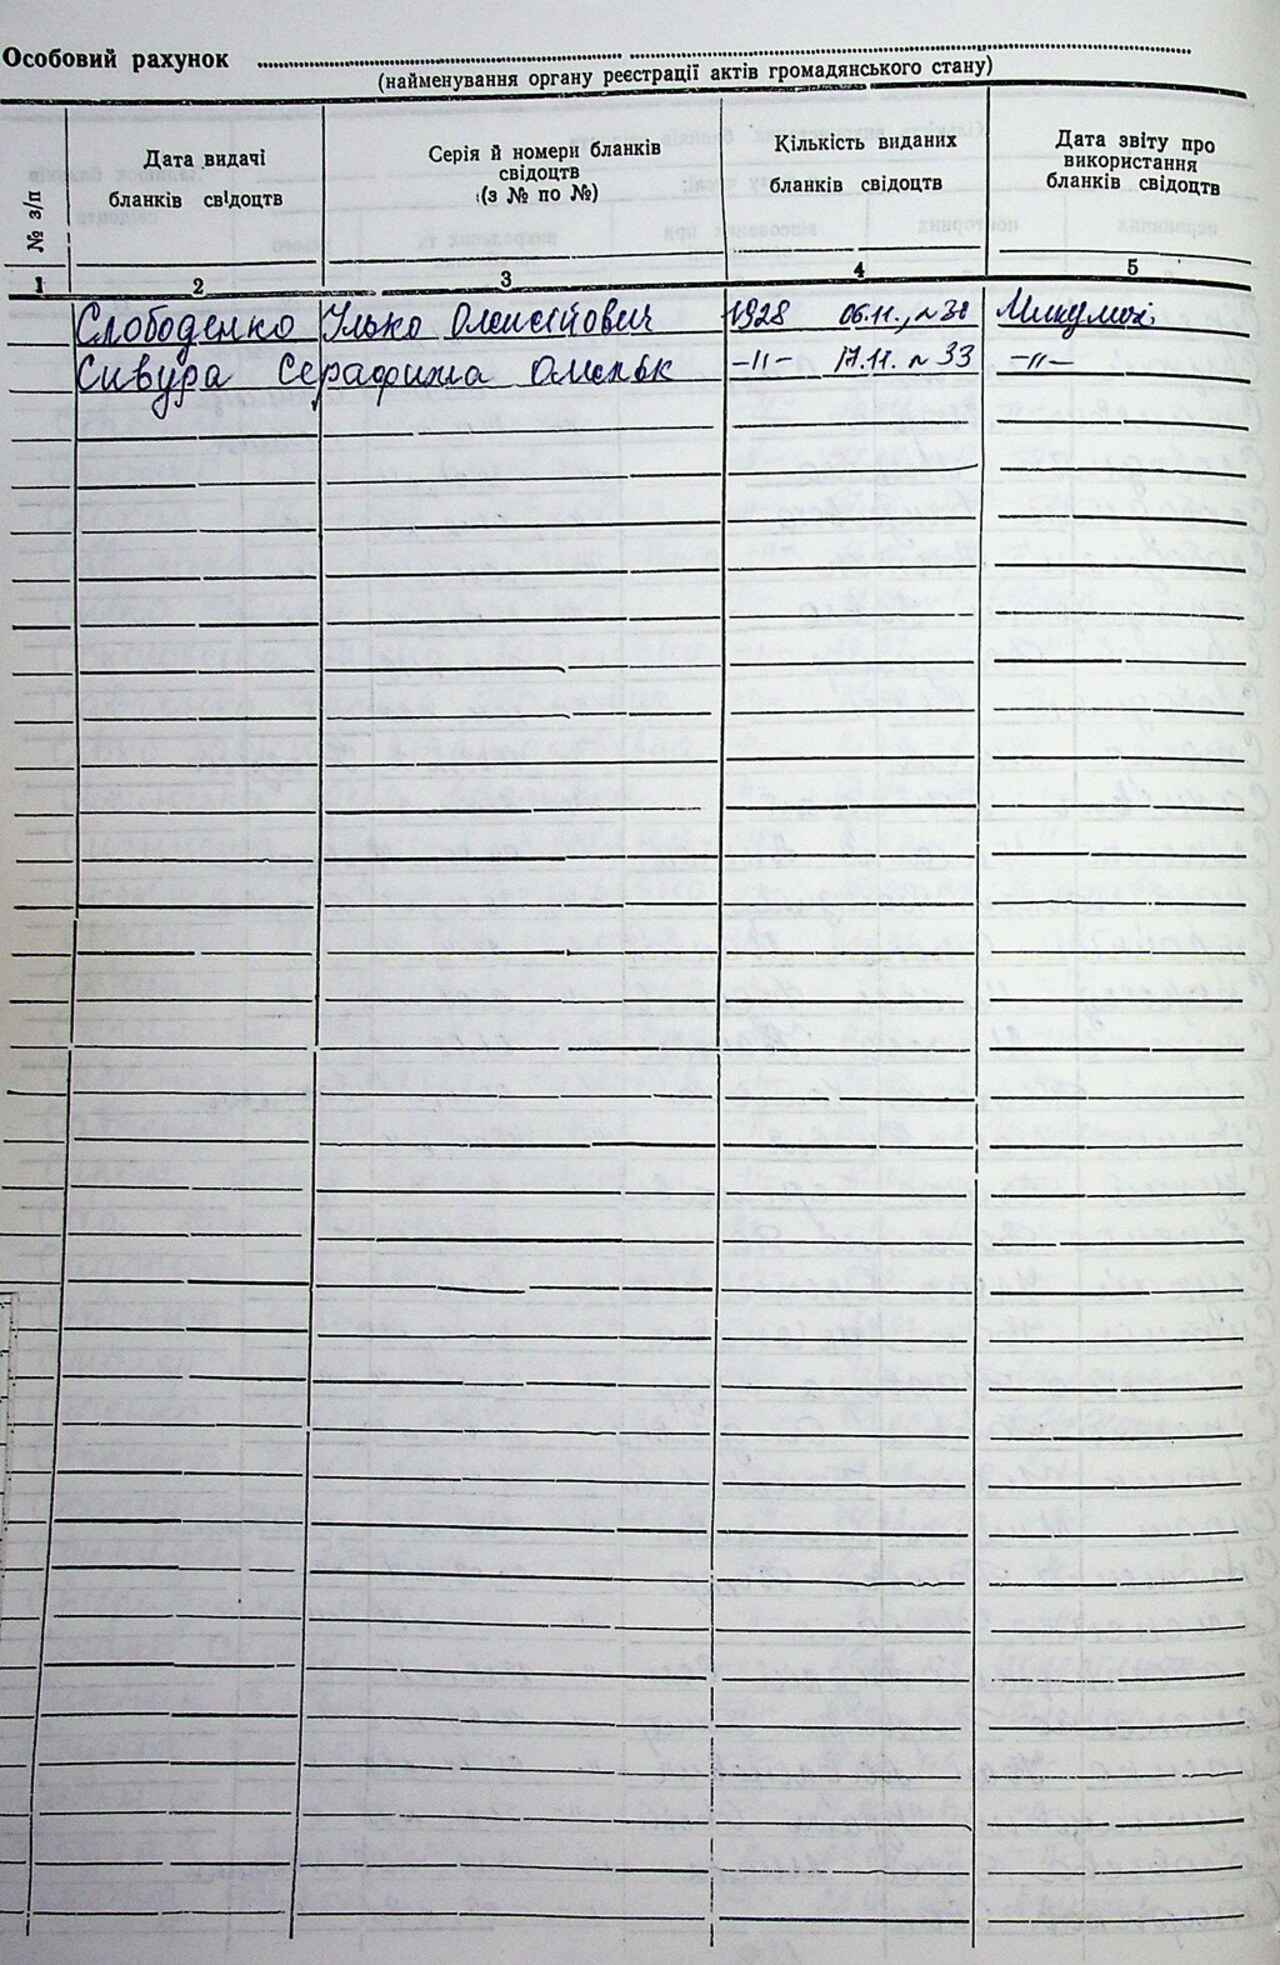 Особовий рахунок
(найменування органу реєстрації актів громадянського стану)
№ з/п
Дата видачі
бланків свідоцтв
Серія й номери бланків
свідоцтв
(з № по №)
Кількість виданих
бланків свідоцтв
Дата звіту про
використання
бланків свідоцтв
1 2 3 4 5
Слободенко Улько Олексійович 1928 06.11., №
Сивура Серафима Омельк -//- 17.11. № 33 -//-